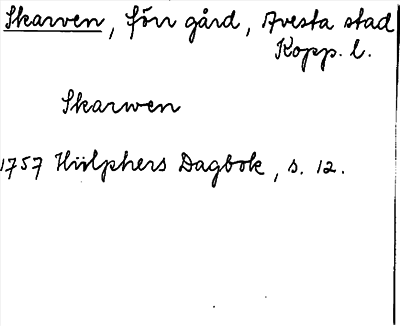 Skarven, förr gård, Avesta stad
Kopp. l.
Skarwen
1757 Hülphers Dagbok, s. 12.